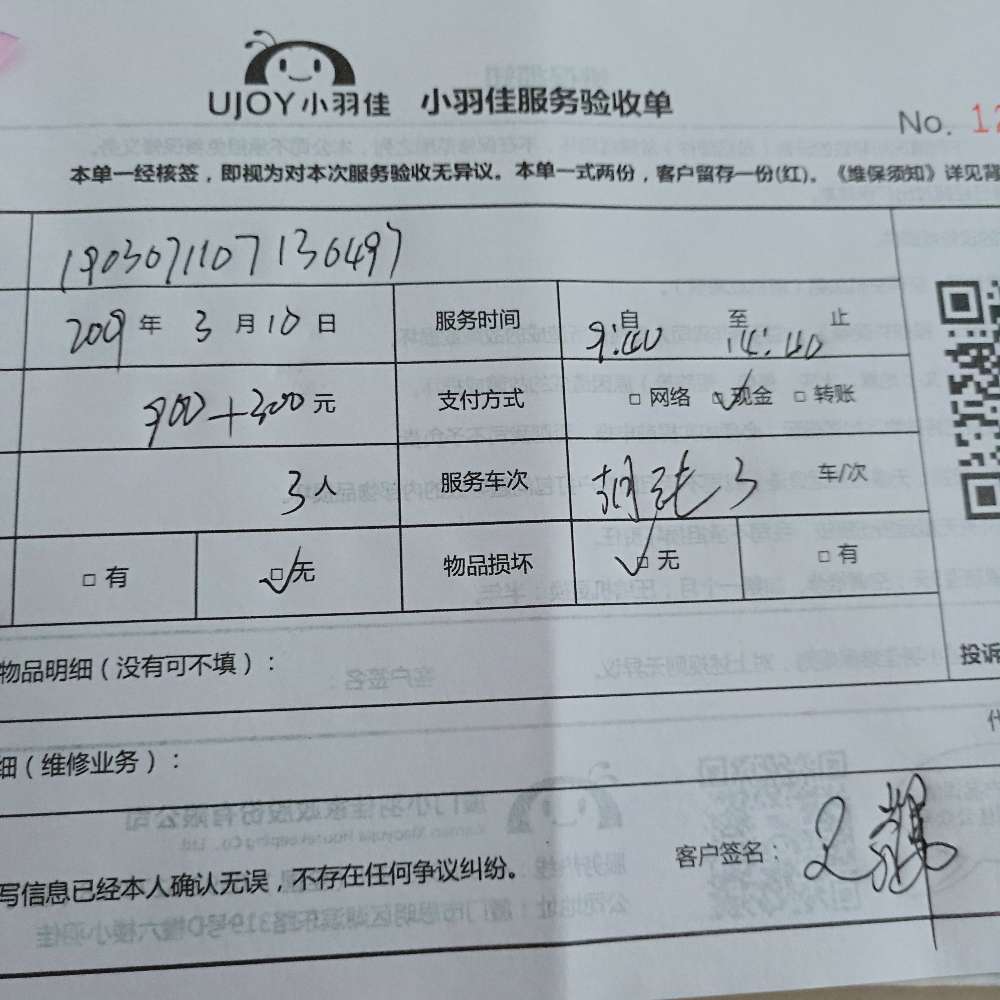 UJOY小羽佳 小羽佳服务验收单
No. 12
本单一经核签，即视为对本次服务验收无异议。本单一式两份，客户留存一份(红)。《维保须知》详见背
1903071107136497
2019年 3月10日 服务时间 自 至 止
9:40 14:40
900+300元 支付方式 □网络 □现金 □转账
3人 服务车次 3 车/次
□有 □无 物品损坏 □无 □有
物品明细（没有可不填）：
投诉
细（维修业务）：
写信息已经本人确认无误，不存在任何争议纠纷。 客户签名：